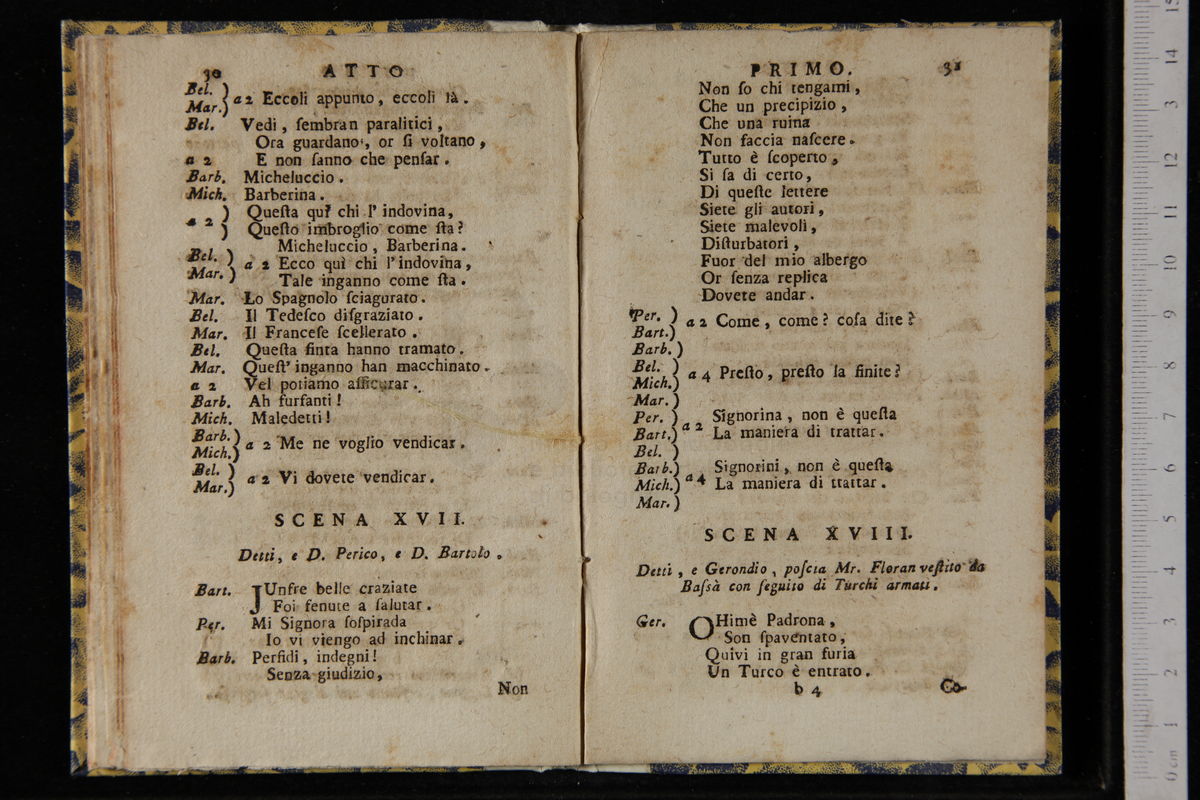 30 ATTO
Bel. )
Mar.) a 2 Eccoli appunto, eccoli là.
Bel. Vedi, ſembran paralitici,
Ora guardano, or ſi voltano,
a 2 E non ſanno che penſar.
Barb. Micheluccio.
Mich. Barberina.
a 2 ) Queſta quì chi l'indovina,
) Queſto imbroglio come ſta?
Micheluccio, Barberina.
Bel. )
Mar. ) a 2 Ecco quì chi l'indovina,
Tale inganno come ſta.
Mar. Lo Spagnolo ſciagurato.
Bel. Il Tedeſco diſgraziato.
Mar. Il Franceſe ſcellerato.
Bel. Queſta finta hanno tramato.
Mar. Queſt'inganno han macchinato.
a 2 Vel potiamo aſſicurar.
Barb. Ah furfanti!
Mich. Maledetti!
Barb.)
Mich.) a 2 Me ne voglio vendicar.
Bel. )
Mar.) a 2 Vi dovete vendicar.
SCENA XVII.
Detti, e D. Perico, e D. Bartolo.
Bart. JUnfre belle craziate
Foi fenute a ſalutar.
Per. Mi Signora ſoſpirada
Io vi viengo ad inchinar.
Barb. Perfidi, indegni!
Senza giudizio,
Non
PRIMO. 31
Non ſo chi tengami,
Che un precipizio,
Che una ruina
Non faccia naſcere.
Tutto è ſcoperto,
Si ſa di certo,
Di queſte lettere
Siete gli autori,
Siete malevoli,
Diſturbatori,
Fuor del mio albergo
Or ſenza replica
Dovete andar.
Per. )
Bart.) a 2 Come, come? coſa dite?
Barb. )
Bel. )
Mich.) a 4 Preſto, preſto la finite?
Mar. )
Per. ) a 2 Signorina, non è queſta
Bart.) La maniera di trattar.
Bel. )
Barb.) a 4 Signorini, non è queſta
Mich.) La maniera di trattar.
Mar. )
SCENA XVIII.
Detti, e Gerondio, poſcia Mr. Floran veſtito da
Baſsà con ſeguito di Turchi armati.
Ger. OHimè Padrona,
Son ſpaventato,
Quivi in gran furia
Un Turco è entrato.
b 4 Co-
0 cm 1 2 3 4 5 6 7 8 9 10 11 12 3 14 15